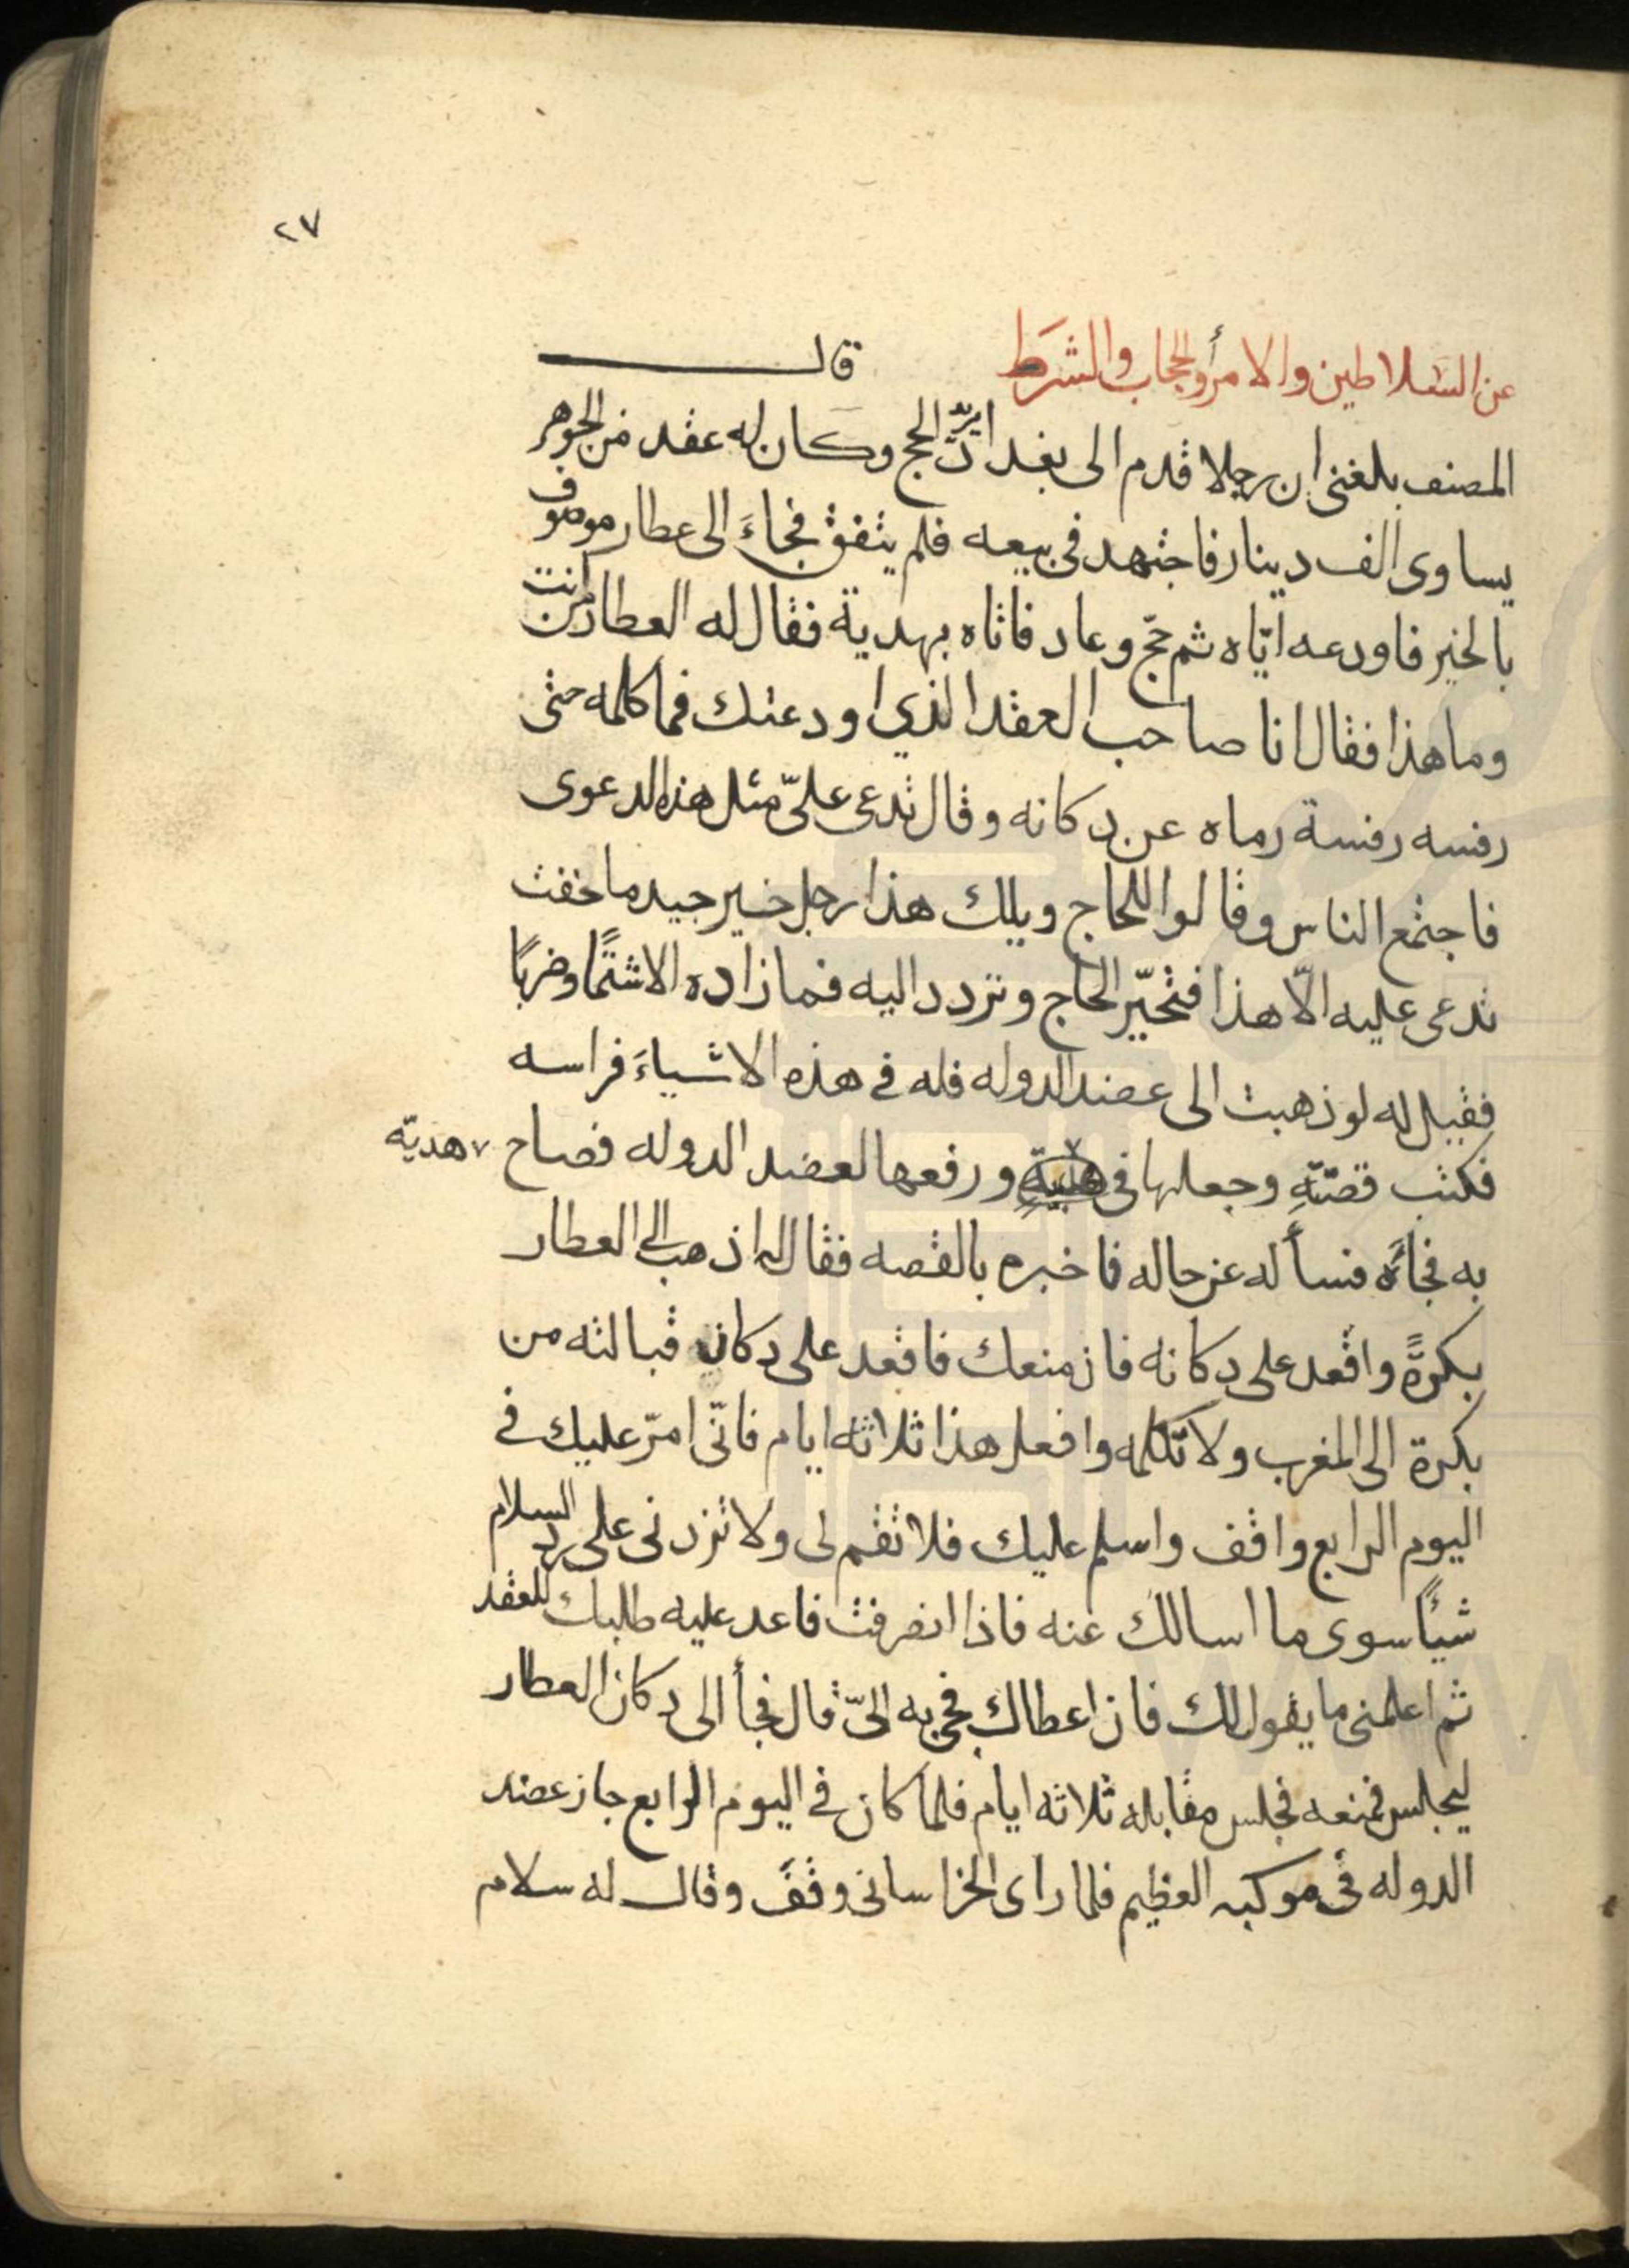 ٢٧
عن السلاطين والامرأ والحجاب والشرط قال
المصنف بلغنى ان رجلا قدم الى بغداد يريد الحج وكان له عقد من الجوهر
يساوى الف دينار فاجتهد فى بيعه فلم يتفق فجاءَ الى عطار موصوف
بالخير فاودعه ايّاه ثم حجّ وعاد فاتاه بهدية فقال له العطار من انت
وما هذا فقال انا صاحب العقد الذي اودعتك فما كلمه حتى
رفسه رفسة رماه عن دكانه وقال تدعى علىّ مثل هذه الدعوى
فاجتمع الناس وقالوا للحاج ويلك هذا رجل خير جيد ما خفت
تدعى عليه الّا هذا فتحيّر الحاج وتردد اليه فما زاده الا شتمًا وضربًا
فقيل له لو ذهبت الى عضد الدوله فله فى هذه الاشياءَ فراسه
فكتب قصّتهِ وجعلها فى ورفعها لعضد الدوله فصاح هديّه
به فجاءَه فسأله عن حاله فاخبره بالقصه فقال له اذهب الى العطار
بكرةً واقعد على دكانه فان منعك فاقعد على دكان قبالته من
بكرة الى المغرب ولا تكلمه وافعل هذا ثلاثه ايام فانّى امرّ عليك فى
اليوم الرابع واقف واسلم عليك فلا تقم لى ولا تزدنى على رد السلام
شيئًا سوى ما اسالك عنه فاذا انصرفت فاعد عليه طلبك للعقد
ثم اعلمنى ما يقول لك فان اعطاك فجى به الىّ قال فجأ الى دكان العطار
ليجلس فمنعه فجلس مقابله ثلاثه ايام فلما كان فى اليوم الرابع جاز عضد
الدوله فى موكبه العظيم فلما راى الخراسانى وقفَ وقال له سلام